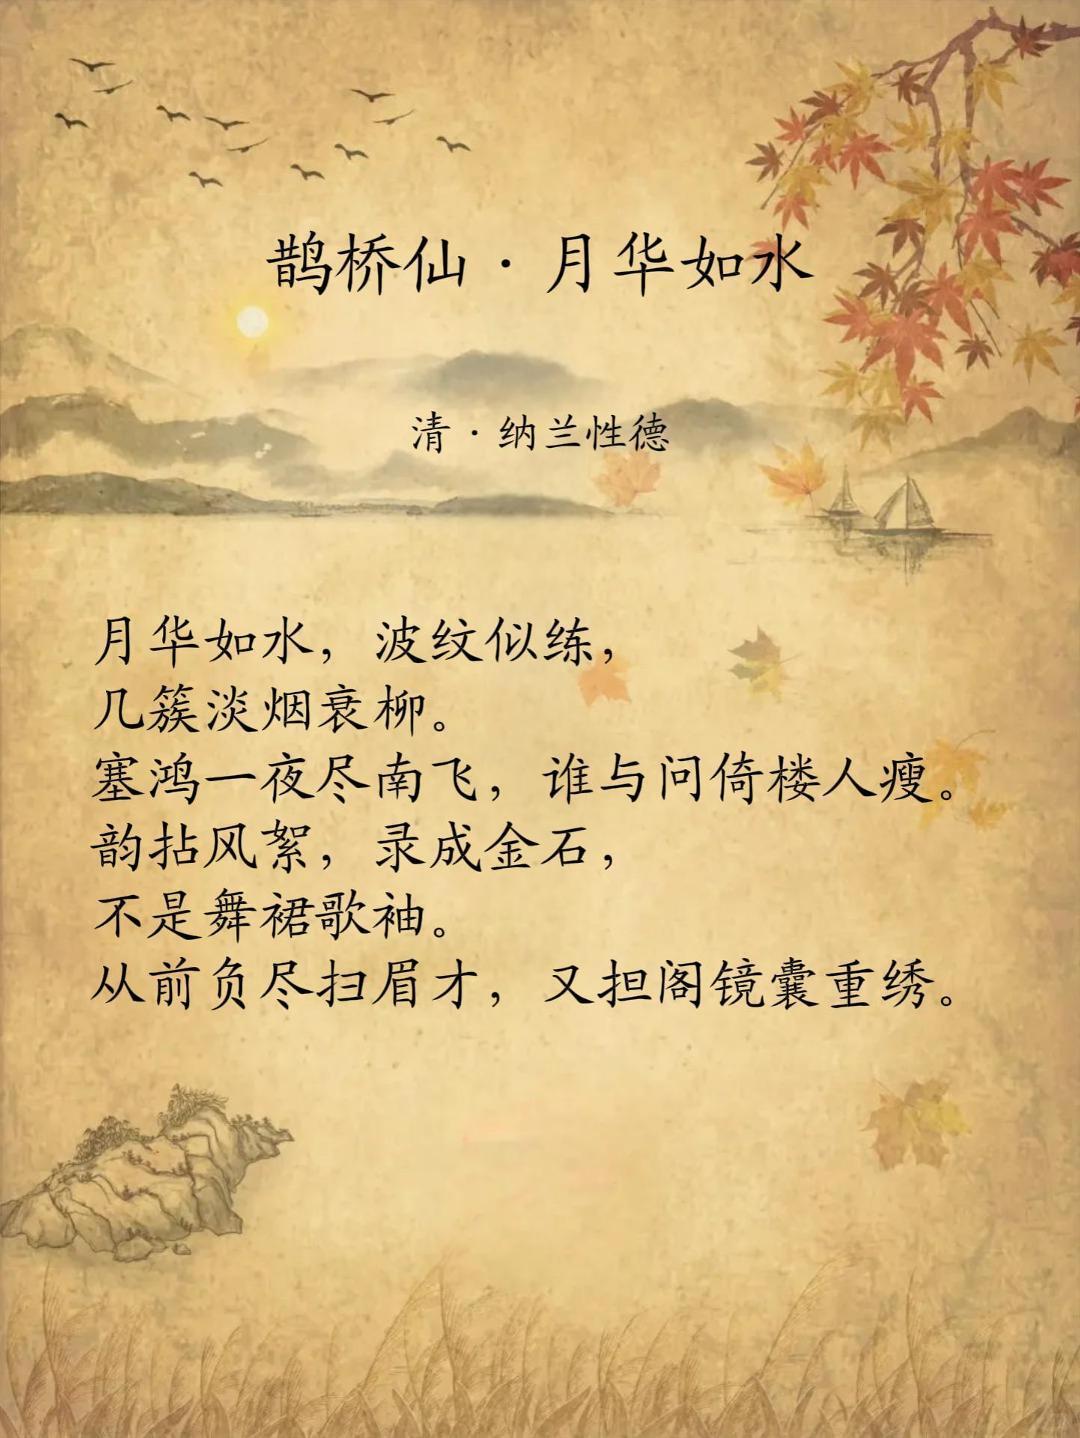 鹊桥仙·月华如水
清·纳兰性德
月华如水，波纹似练，
几簇淡烟衰柳。
塞鸿一夜尽南飞，谁与问倚楼人瘦。
韵拈风絮，录成金石，
不是舞裙歌袖。
从前负尽扫眉才，又担阁镜囊重绣。